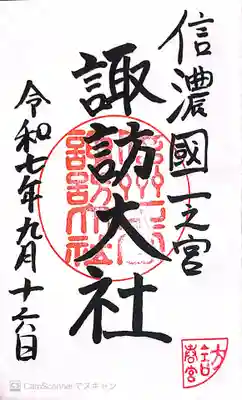 信濃國一之宮
諏訪大社
令和七年九月十六日
CamScanner でスキャン